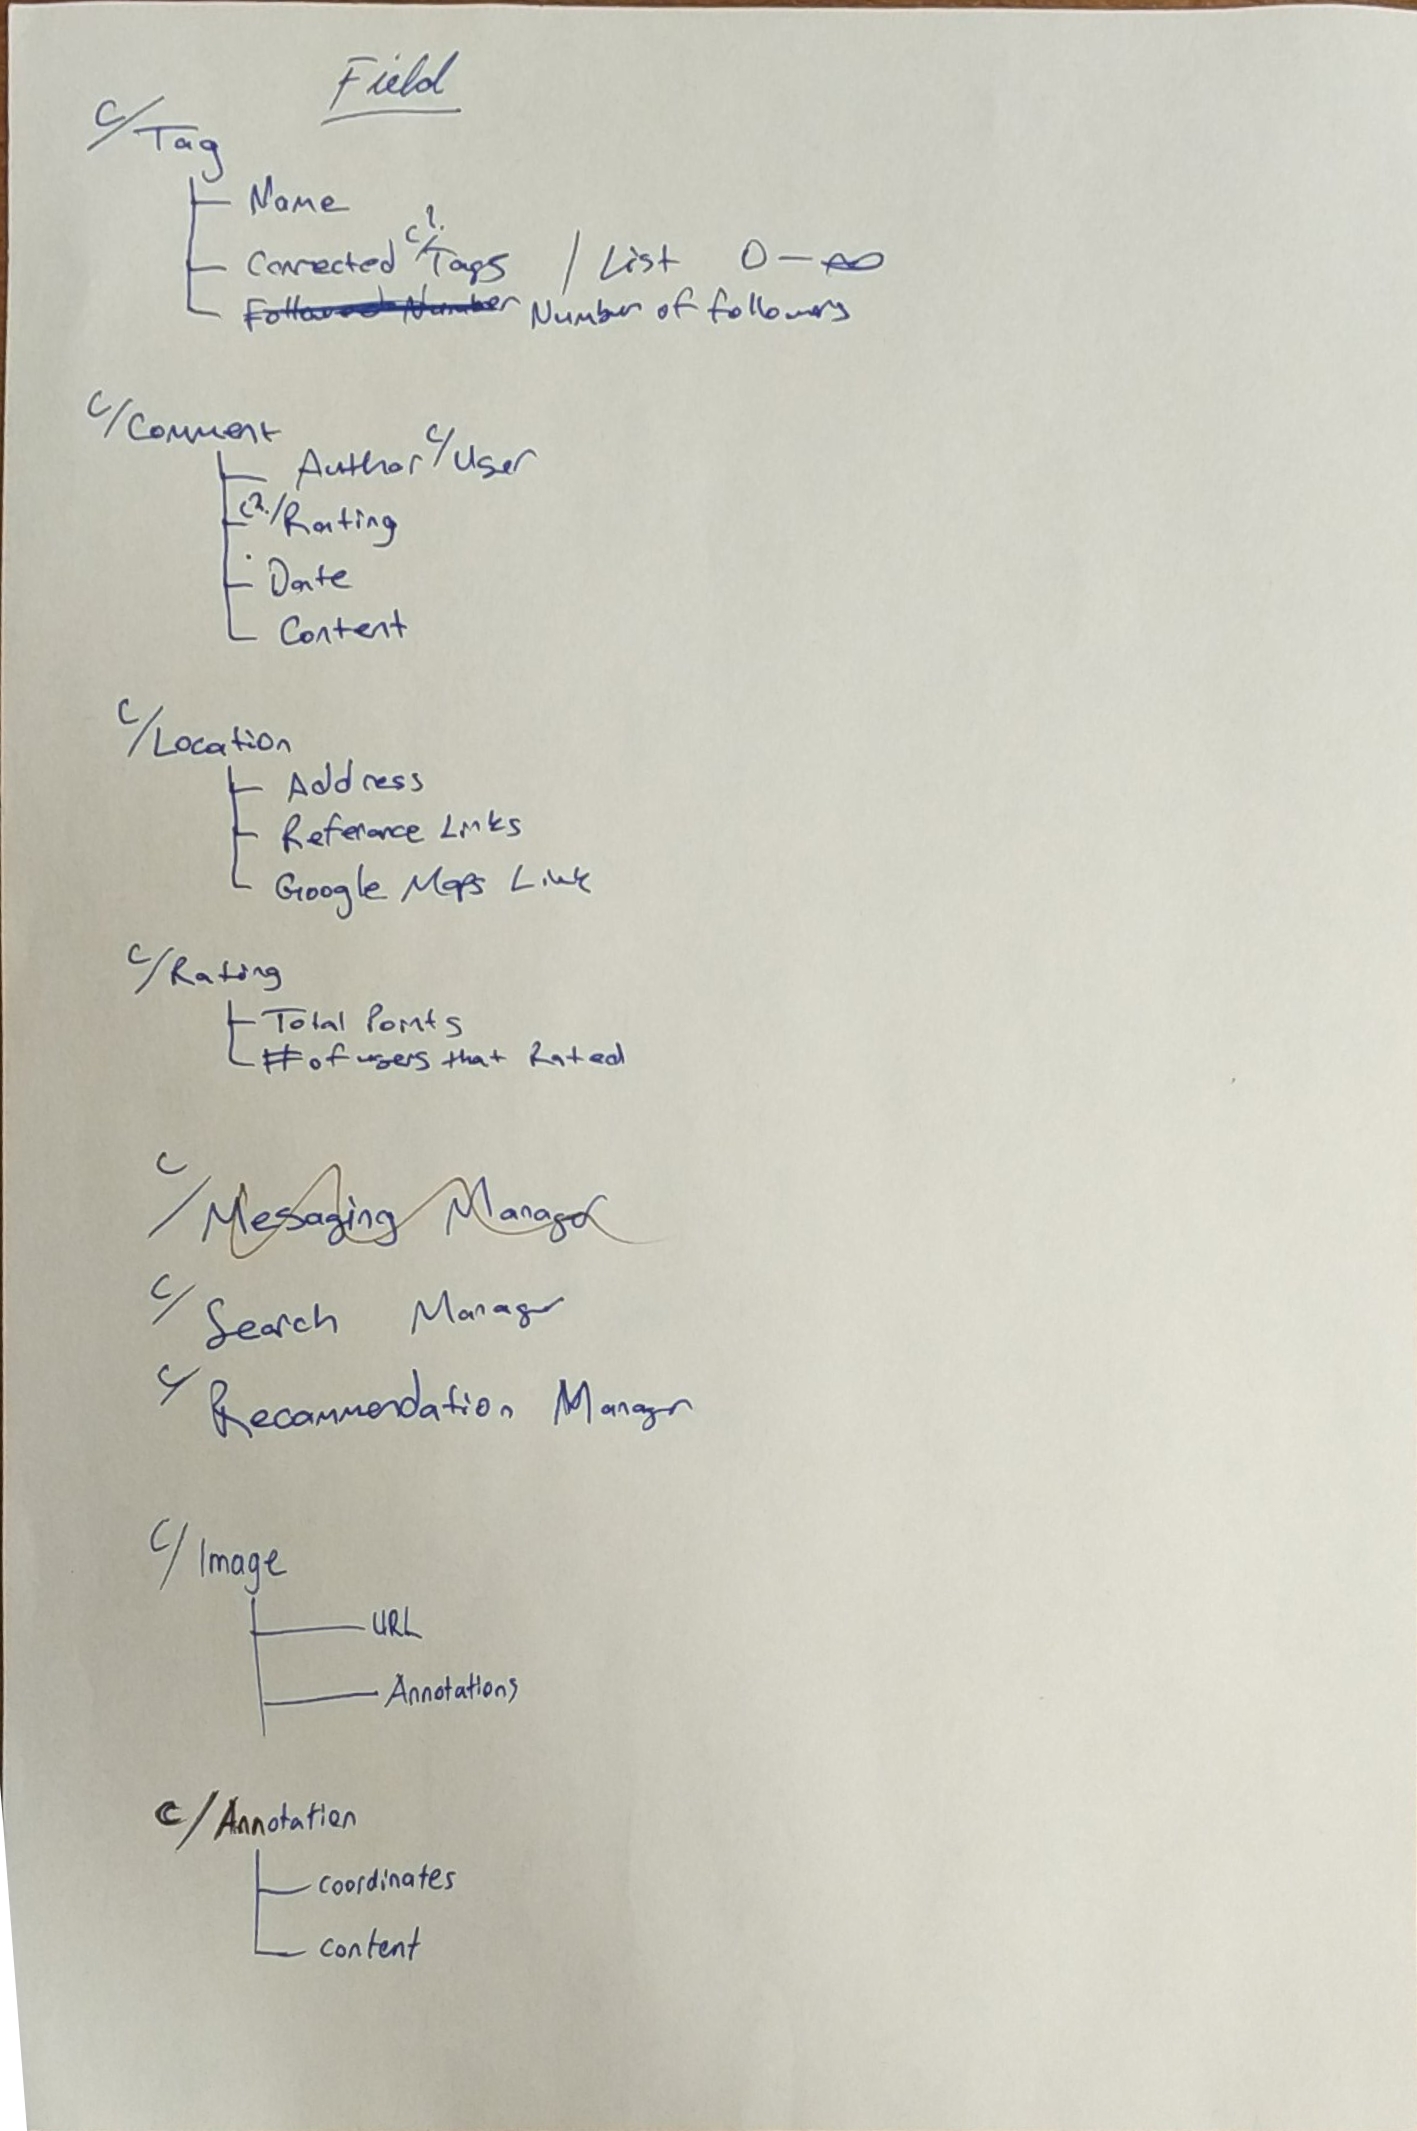 Field
C/Tag
Name
Connected C?/Tags / List 0-∞
Followed Number Number of followers
C/Comment
Author C/User
C?/Rating
Date
Content
C/Location
Address
Referance Links
Google Maps Link
C/Rating
Total Points
# of users that Rated
C/Mesaging Manager
C/Search Manager
C/Recommendation Manager
C/Image
URL
Annotations
C/Annotation
coordinates
content